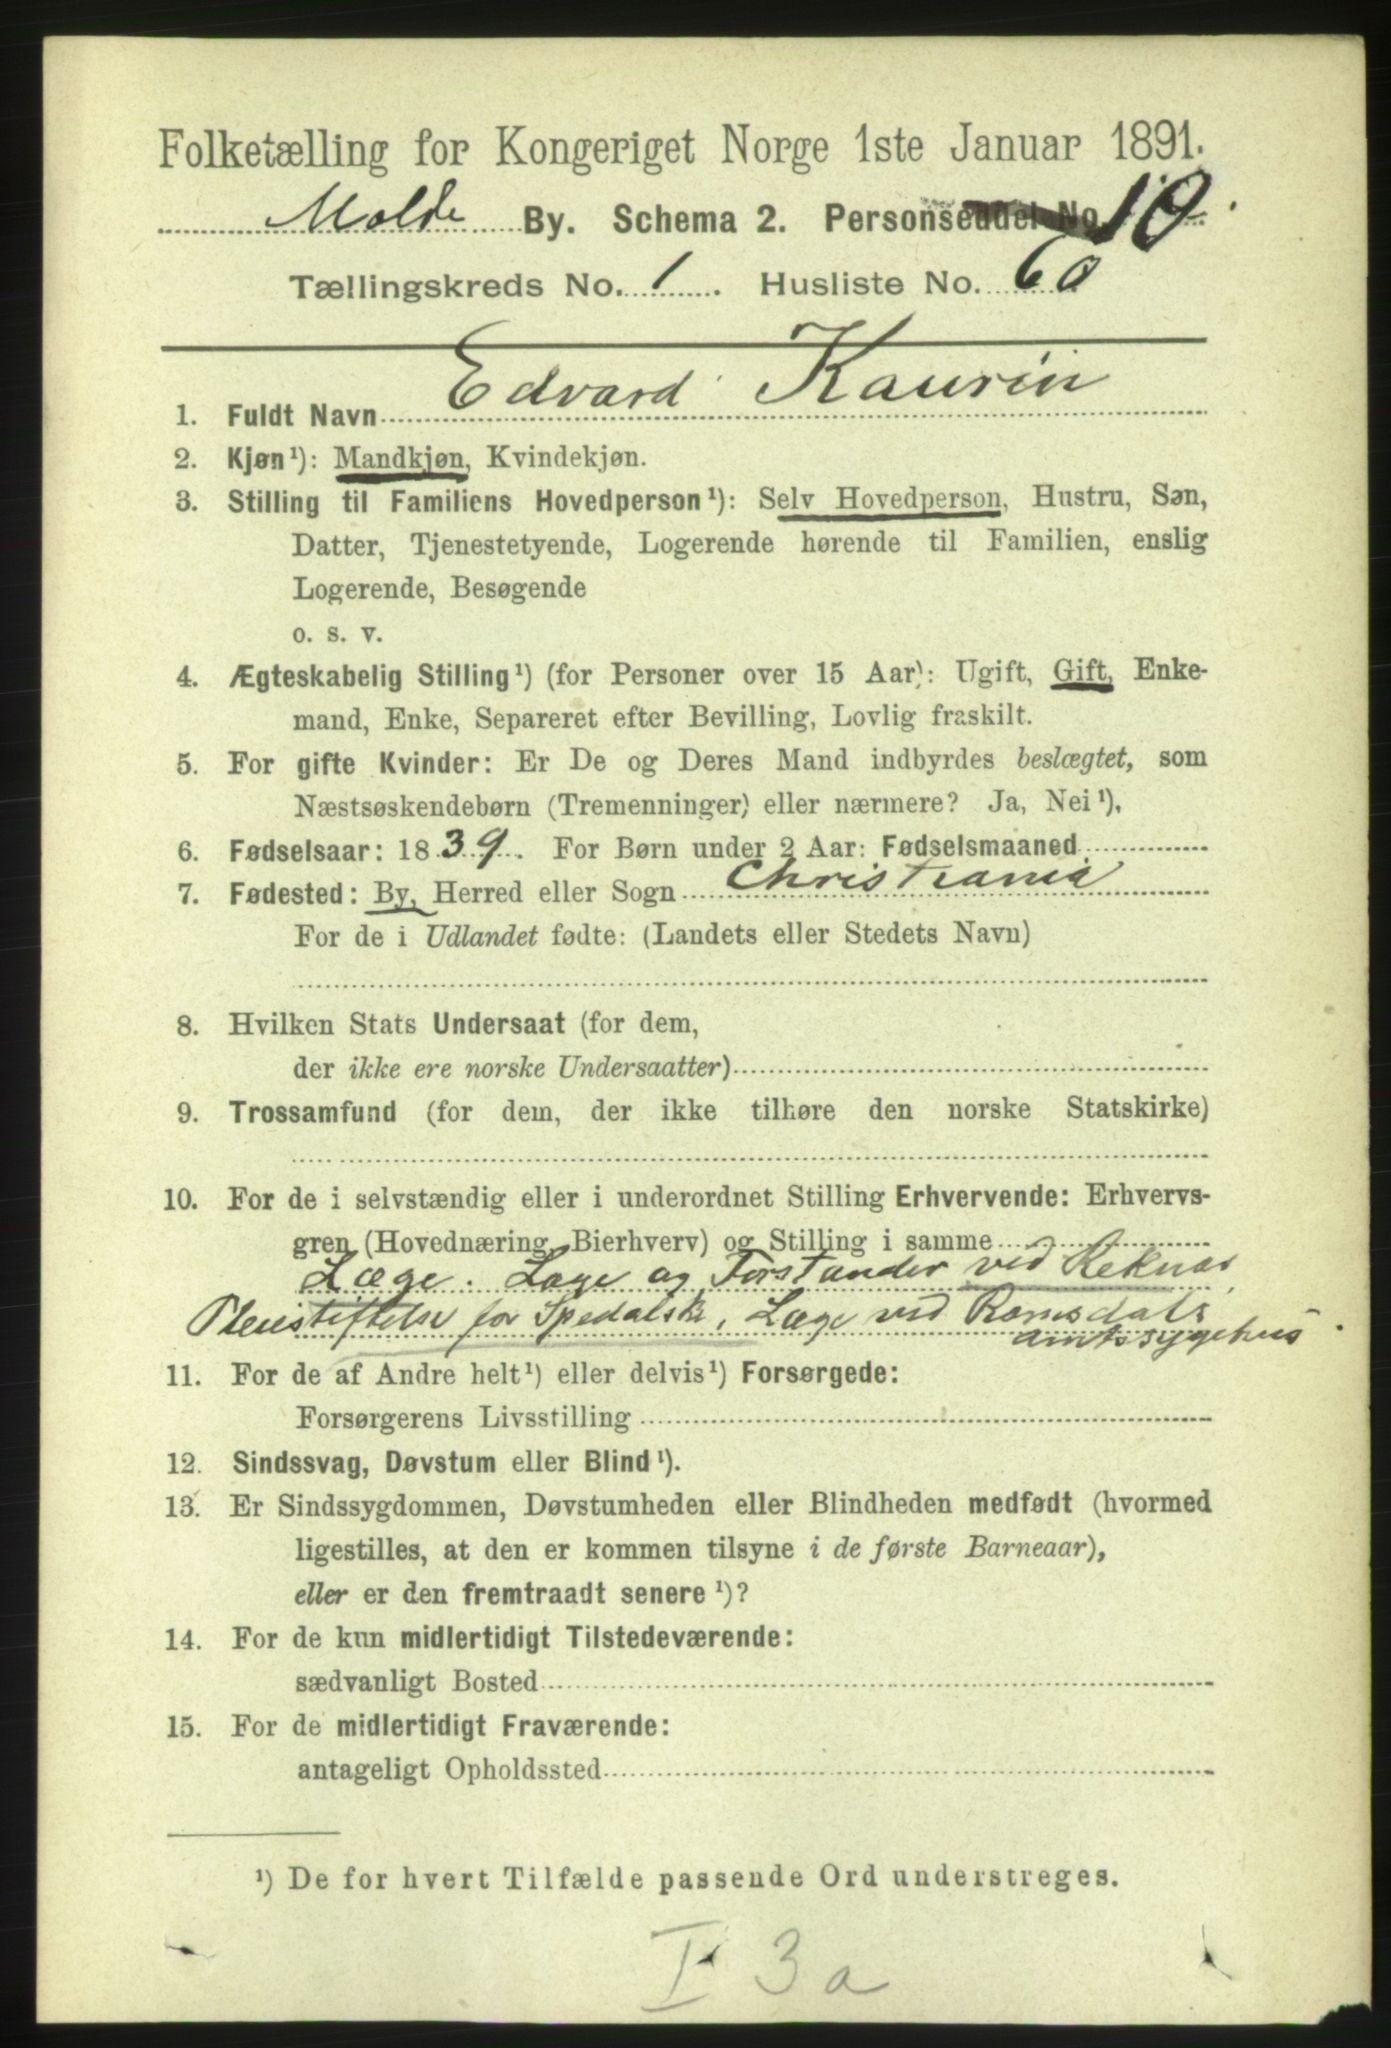 Folketælling for Kongeriget Norge 1ste Januar 1891.
Molde By. Schema 2. Personseddel No. 10.
Tællingskreds No. 1. Husliste No. 60
1. Fuldt Navn Edvard Kaurin
2. Kjøn¹): Mandkjøn, Kvindekjøn.
3. Stilling til Familiens Hovedperson¹): Selv Hovedperson, Hustru, Søn,
Datter, Tjenestetyende, Logerende hørende til Familien, enslig
Logerende, Besøgende
o. s. v.
4. Ægteskabelig Stilling¹) (for Personer over 15 Aar): Ugift, Gift, Enke-
mand, Enke, Separeret efter Bevilling, Lovlig fraskilt.
5. For gifte Kvinder: Er De og Deres Mand indbyrdes beslægtet, som
Næstsøskendebørn (Tremenninger) eller nærmere? Ja, Nei¹).
6. Fødselsaar: 1839. For Børn under 2 Aar: Fødselsmaaned
7. Fødested: By, Herred eller Sogn Christiania
For de i Udlandet fødte: (Landets eller Stedets Navn)
8. Hvilken Stats Undersaat (for dem,
der ikke ere norske Undersaatter)
9. Trossamfund (for dem, der ikke tilhøre den norske Statskirke)
10. For de i selvstændig eller i underordnet Stilling Erhvervende: Erhvervs-
gren (Hovednæring, Bierhverv) og Stilling i samme
Læge. Læge og Forstander ved Reknæs
Pleiestiftelse for Spedalske, Læge ved Romsdals
amtssygehus.
11. For de af Andre helt¹) eller delvis¹) Forsørgede:
Forsørgerens Livsstilling
12. Sindssvag, Døvstum eller Blind¹).
13. Er Sindssygdommen, Døvstumheden eller Blindheden medfødt (hvormed
ligestilles, at den er kommen tilsyne i de første Barneaar),
eller er den fremtraadt senere¹)?
14. For de kun midlertidigt Tilstedeværende:
sædvanligt Bosted
15. For de midlertidigt Fraværende:
antageligt Opholdssted
¹) De for hvert Tilfælde passende Ord understreges.
I 3a